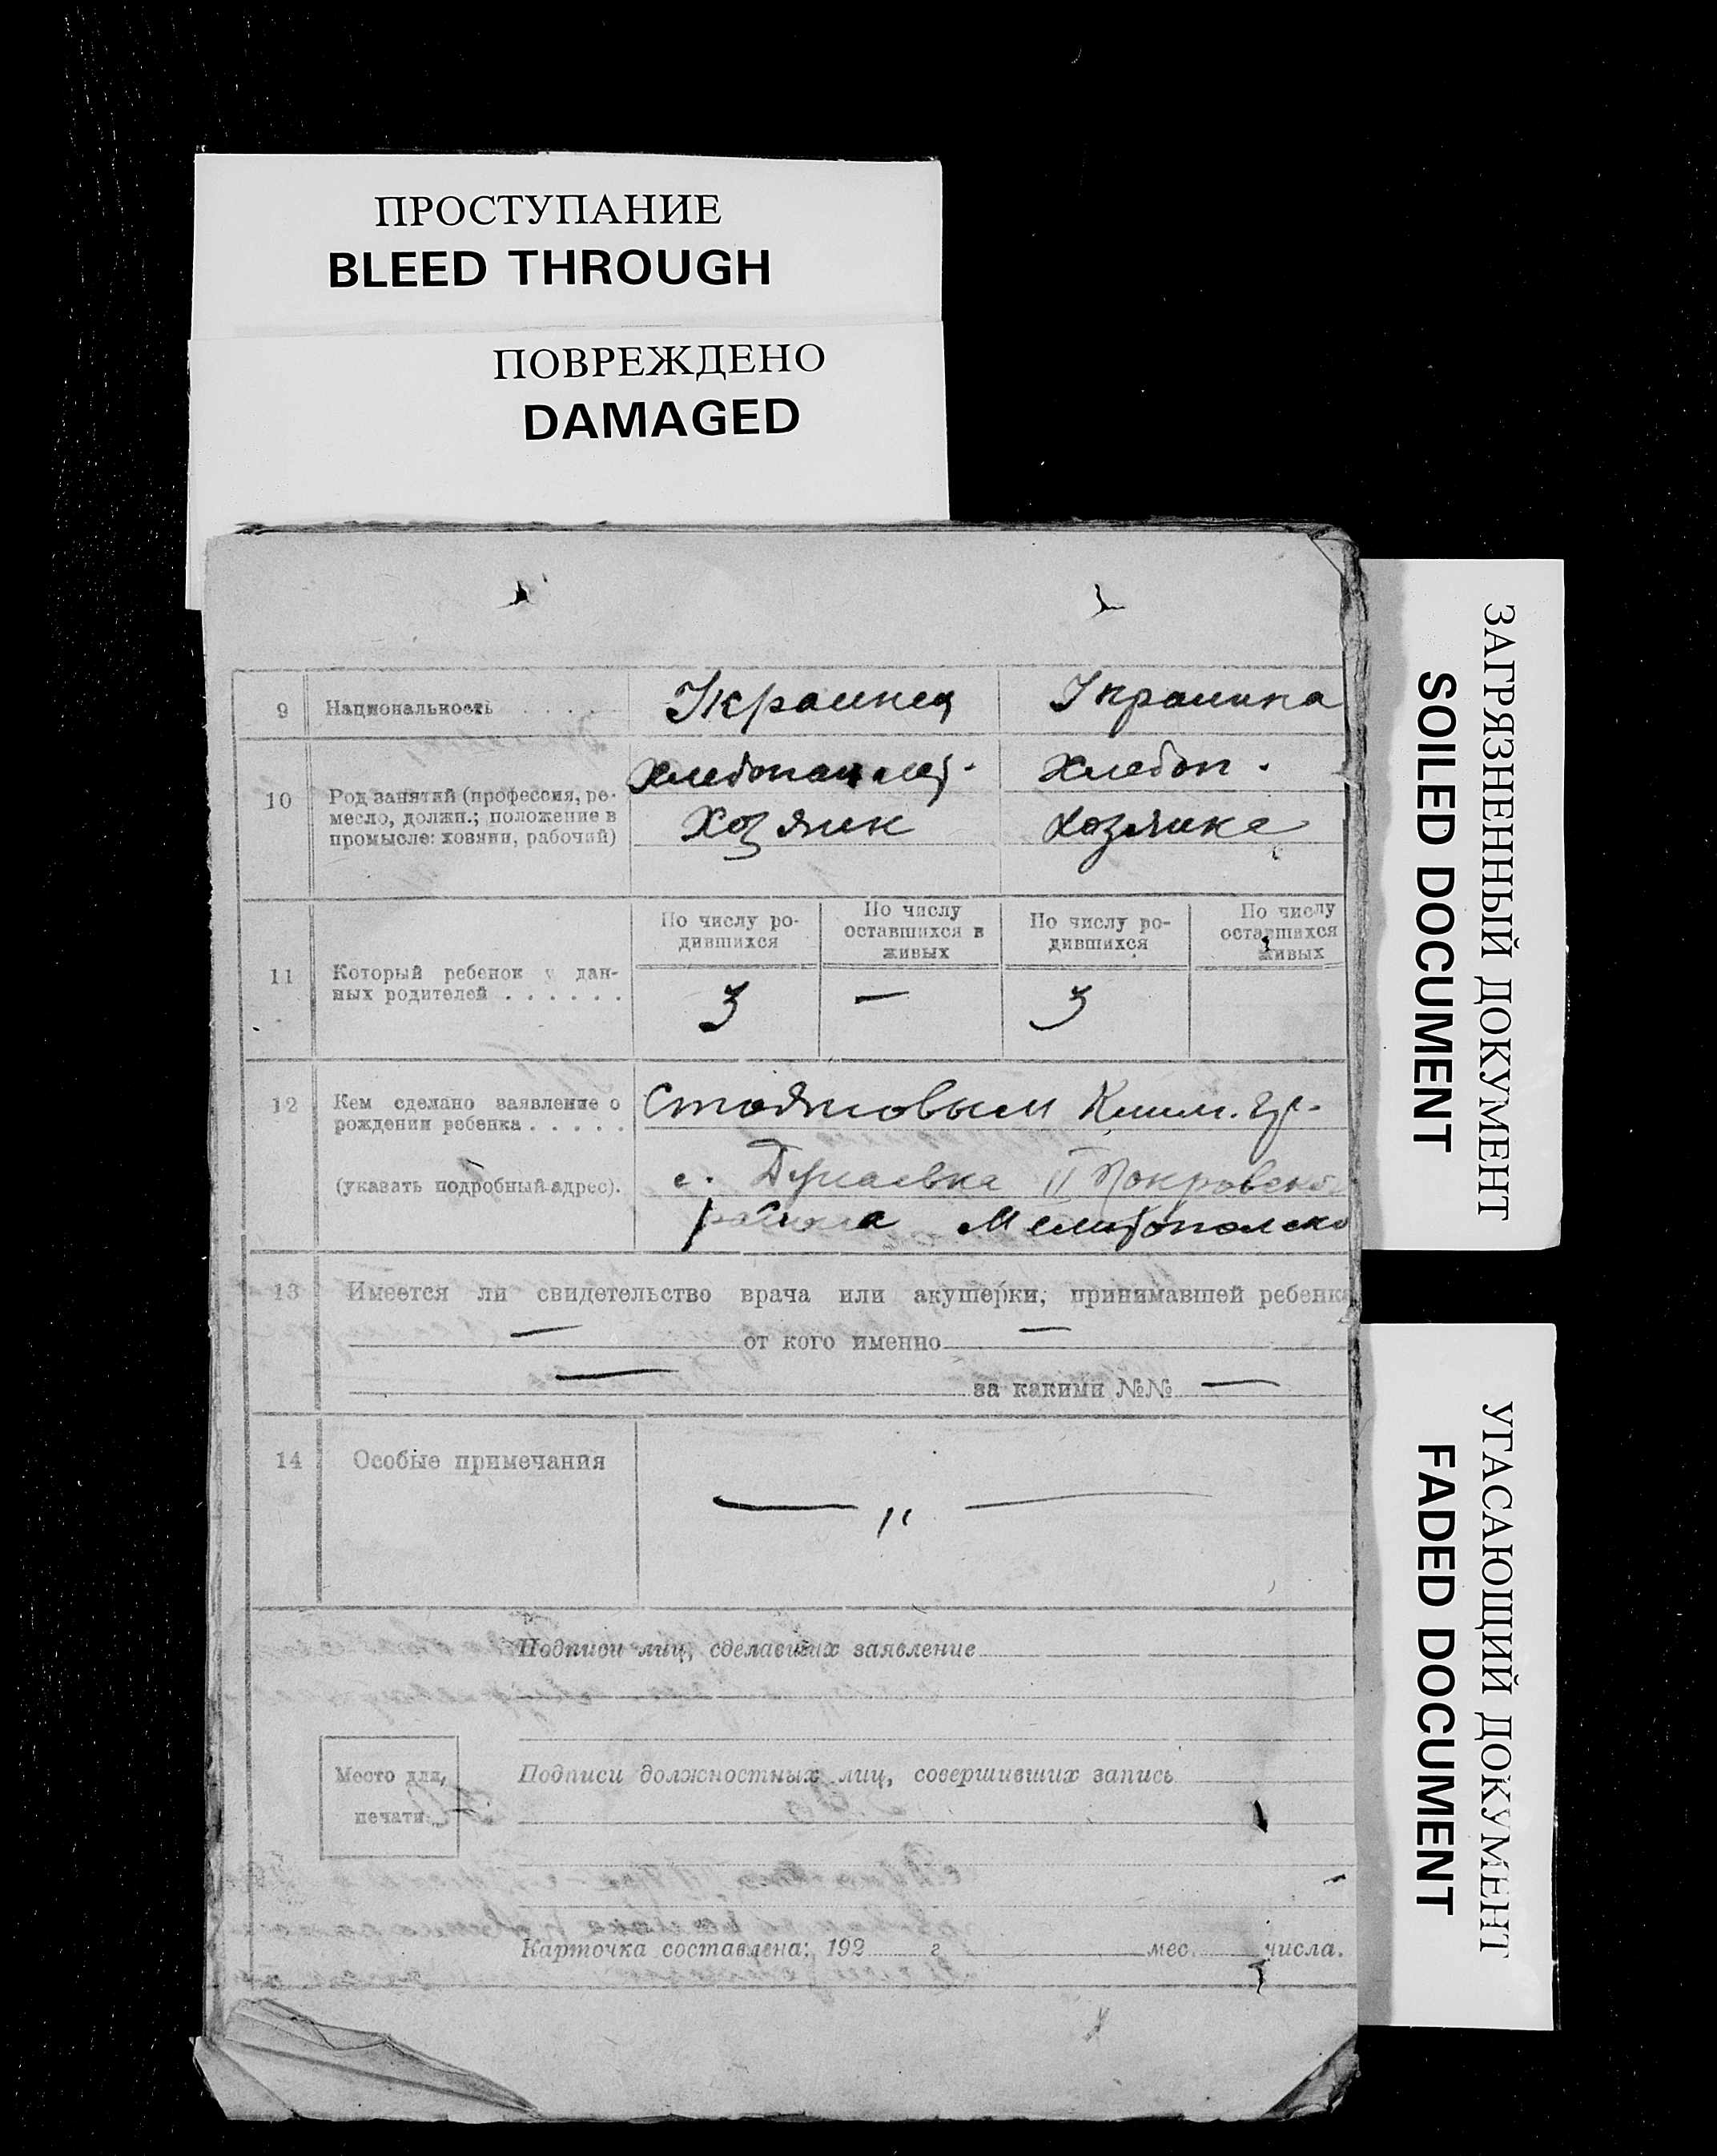 ПРОСТУПАНИЕ
BLEED THROUGH
ПОВРЕЖДЕНО
DAMAGED
ЗАГРЯЗНЕННЫЙ ДОКУМЕНТ
SOILED DOCUMENT
УГАСАЮЩИЙ ДОКУМЕНТ
FADED DOCUMENT
9 Национальность . . . . Украинец Украинка
10 Род занятий (профессия, ре-
месло, должн.; положение в
промысле: хозяин, рабочий)
Хлебопашец. Хлебоп.
Хозяин Хозяйке
11 Который ребенок у дан-
ных родителей . . . . . .
По числу ро-
дившихся
По числу
оставшихся в
живых
По числу ро-
дившихся
По числу
оставшихся
живых
3 — 3
12 Кем сделано заявление о
рождении ребенка . . . . .
(указать подробный адрес).
Стояновым
с. Дунаевка II Покровско
района Мелитополско
13 Имеется ли свидетельство врача или акушерки, принимавшей ребенка
— от кого именно —
— за какими №№ —
14 Особые примечания
— „ —
Подписи лиц, сделавших заявление
Место для
печати
Подписи должностных лиц, совершивших запись
Карточка составлена: 192 г мес. числа.